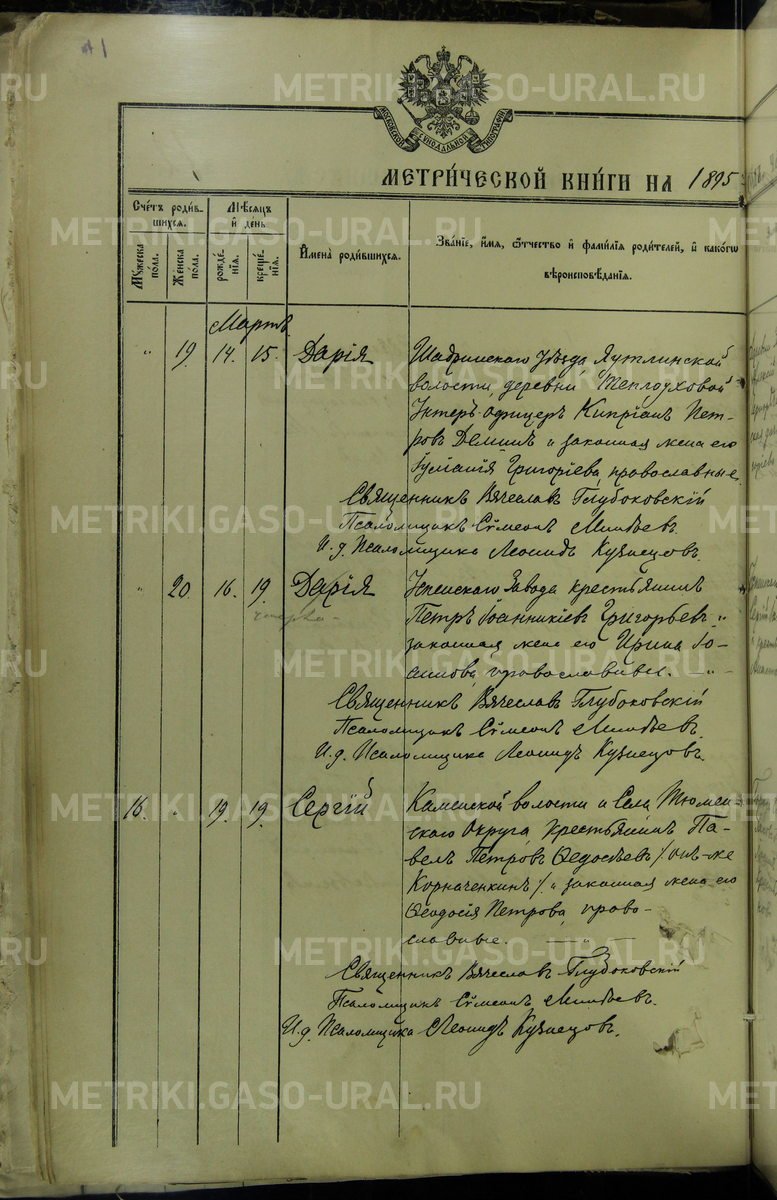 МОСКОВСКОЙ СѴНОДАЛЬНОЙ ТИПОГРАФІИ
МЕТРИ́ЧЕСКОЙ КНИ́ГИ НА 1895
Сче́тъ роди́в-
шихся.
Мѣ́сяцъ
и҆ де́нь
Мꙋ́жеска
по́ла.
Же́нска
по́ла.
рожде́-
нїѧ.
креще́-
нїѧ.
И҆мена̀ роди́вшихся.
Зва́нїе, и҆́мя, ѻ҆́тчество и҆ фами́лїя роди́телей, и҆ како́гѡ
вѣроисповѣ́данїя.
Мартъ
" 19 14. 15. Дарія
Шадринскаго Уѣзда Яутлинской
волости, деревни Теплоуховой
Унтеръ офицеръ Кипріанъ Пет-
ровъ Деминъ и законная жена его
Іуліанія Григоріева, православные.
Священникъ Вячеславъ Глубоковскій
Псаломщикъ Сѵмеонъ
И. д. Псаломщика Леонидъ Кузнецовъ.
" 20 16. 19. Дарія
Успенскаго Завода крестьянинъ
Петръ Іоанникіевъ Григорьевъ и
законная жена его Ирина Іо-
аннова, православные.
Священникъ Вячеславъ Глубоковскій
Псаломщикъ Сѵмеонъ
И. д. Псаломщика Леонидъ Кузнецовъ.
16. " 19. 19. Сергій
Каменской волости и Села Тюмен-
скаго Округа крестьянинъ Па-
велъ Петровъ Ѳедосѣевъ /онъ-же
Корначенкинъ/ и законная жена его
Ѳеодосія Петрова, право-
славные.
Священникъ Вячеславъ Глубоковскій
Псаломщикъ Сѵмеонъ
И. д. Псаломщика Леонидъ Кузнецовъ.
METRIKI.GASO-URAL.RU